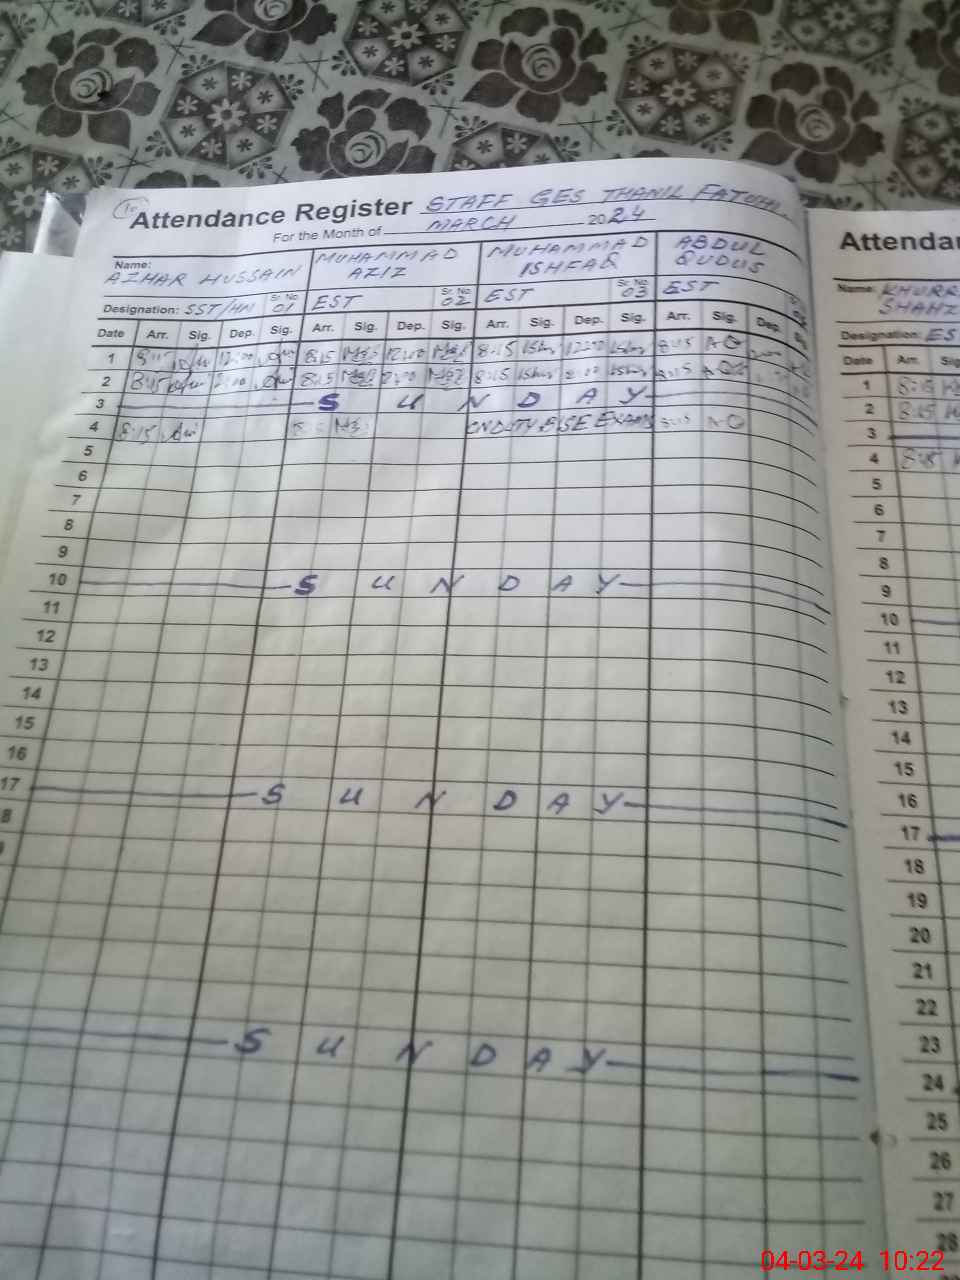 Attendance Register STAFF GES THANIL FATOHI
For the Month of MARCH 2024
Name: AZHAR HUSSAIN MUHAMMAD AZIZ MUHAMMAD ISHFAQ ABDUL QUDUS
Designation: SST/HM Sr. No. 01 EST Sr. No. 02 EST Sr. No. 03 EST
Date Arr. Sig. Dep. Sig. Arr. Sig. Dep. Sig. Arr. Sig. Dep. Sig. Arr. Sig. Dep.
1 8:15 12:00 8:15 12:00 8:15 12:00 8:15
2 8:15 8:15 8:15 8:15
3 SUNDAY
4 8:15 8:15 ON DUTY BISE EXAM 8:15
5
6
7
8
9
10 SUNDAY
11
12
13
14
15
16
17 SUNDAY
8
SUNDAY
Attendar
Name: KHURR
SHAHZ
Designation: ES
Date Arr. Sig
1 8:15
2 8:15
3
4 8:15
5
6
7
8
9
10
11
12
13
14
15
16
17
18
19
20
21
22
23
24
25
26
27
28
04-03-24 10:22